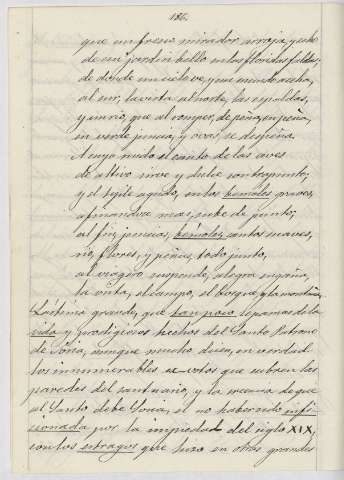 186.
que un fresco mirador arroja, y echa
de un jardin bello en las floridas faldas,
de donde un cielo ve, y un mundo acecha,
al sur, la vista al norte, las espaldas,
y un rio, que al romper, de peña, en peña,
en verde juncia, y ovas se despeña.
A cuyo ruido el canto de las aves
de altivo sirve y dulce contrapunto;
y el tiple agudo, en los bemoles graves,
afinandose mas, sube de punto;
al fin, juncias, bemoles, cantos suaves,
rio, flores, y peñas, todo junto,
al viagero suspende, alegra y
la vista, el campo, el bosque y la montaña.
Lastima grande, que tan poco sepamos de la
vida y prodigiosos hechos del Santo Patrono
de Soria, aunque mucho dicen, en verdad
los innumerables ex-votos que cubren las
paredes del santuario, y la creencia de que
al Santo debe Soria, el no haberse
infi-
cionada por la impiedad del siglo XIX,
con los estragos que hizo en otras grandes